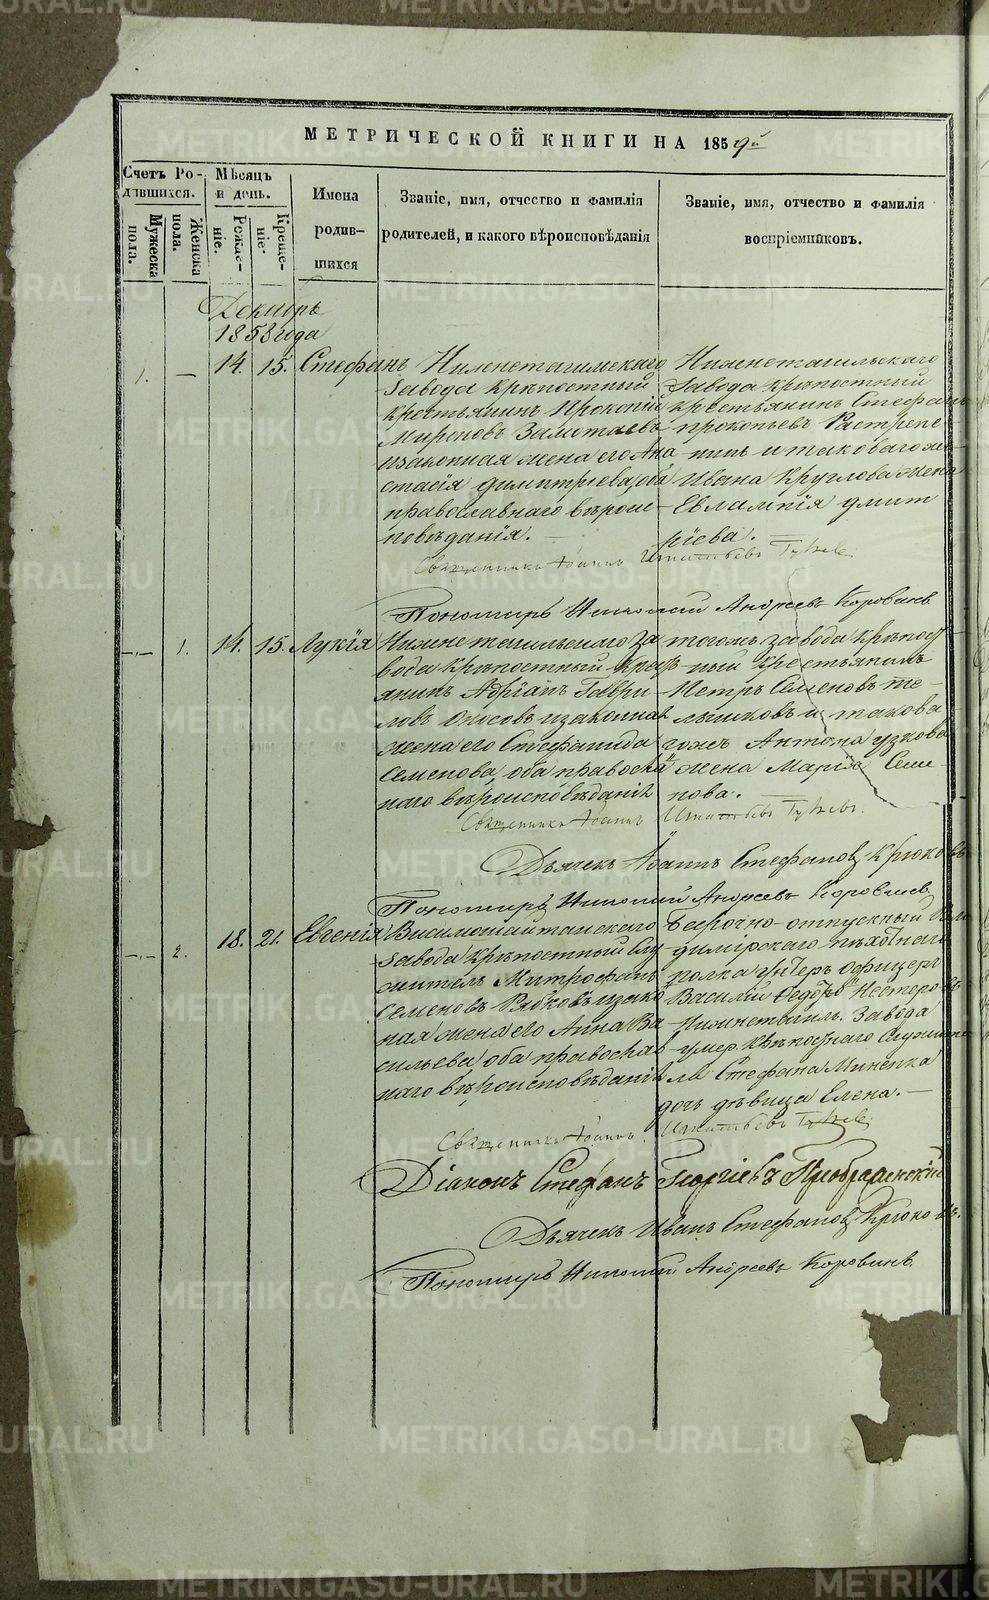 МЕТРИЧЕСКОЙ КНИГИ НА 1859й
Счетъ Ро-
дившихся.
Мѣсяцъ
и день.
Имена
родив-
шихся
Званіе, имя, отчество и фамилія
родителей, и какого вѣроисповѣданія
Званіе, имя, отчество и фамилія
воспріемниковъ.
Мужеска
пола.
Женска
пола.
Рожде-
ніе.
Креще-
ніе.
Декабрь
1858 года
1. — 14. 15. Стефанъ
Нижнетагильскаго
Завода крѣпостный
крестьянинъ Прокопій
Мироновъ
изаконная жена его Ана
стасія Димитріева, оба
православнаго вѣроис-
повѣданія.
Нижнетагильскаго
Завода крѣпостный
крестьянинъ Стефанъ
прокопьевъ Растрепе-
нинъ и таковагоже
Ивана Круглова жена
Евлампія Дмит
ріева.
Священникъ Іоаннъ Игнатьевъ
Пономарь Николай Андреевъ Коровинъ
-,- 1. 14. 15. Лукія
Нижнетагильскаго За
вода крѣпостный крест
янинъ Адріанъ Гаври
ловъ изаконная
жена его Стефанида
Семенова, оба правосла
наго вѣроисповѣданія
тогожъ завода крѣпост
ный крестьянинъ
Петръ Семеновъ Те-
льшковъ и такова
гожъ Антона Узкова
жена Марія Семе-
нова.
Священникъ Іоаннъ Игнатьевъ
Дьячекъ Іоаннъ Стефановъ Крюковъ
Пономарь Николай Андреевъ Коровинъ
-,- 2. 18. 21. Евгенія
Висимошайтанскаго
завода крѣпостный Слу
житель Митрофанъ
Семеновъ Рябковъ изако
ная жена его Анна Ва
сильева, оба православ
наго вѣроисповѣданія
Безсрочно-отпускный Вла
димірскаго пѣхотнаго
полка унтеръ офицеръ
Василій Федоровъ Нестеровъ
Нижнетагил. Завода
умер. крѣпостнаго Служите
ля Стефана Миненка
дочь дѣвица Елена. —
Священникъ Іоаннъ Игнатьевъ
Діаконъ Стефанъ Георгіевъ Преображенскій
Дьячекъ Иванъ Стефановъ Крюковъ.
Пономарь Николай Андреевъ Коровинъ.
METRIKI.GASO-URAL.RU